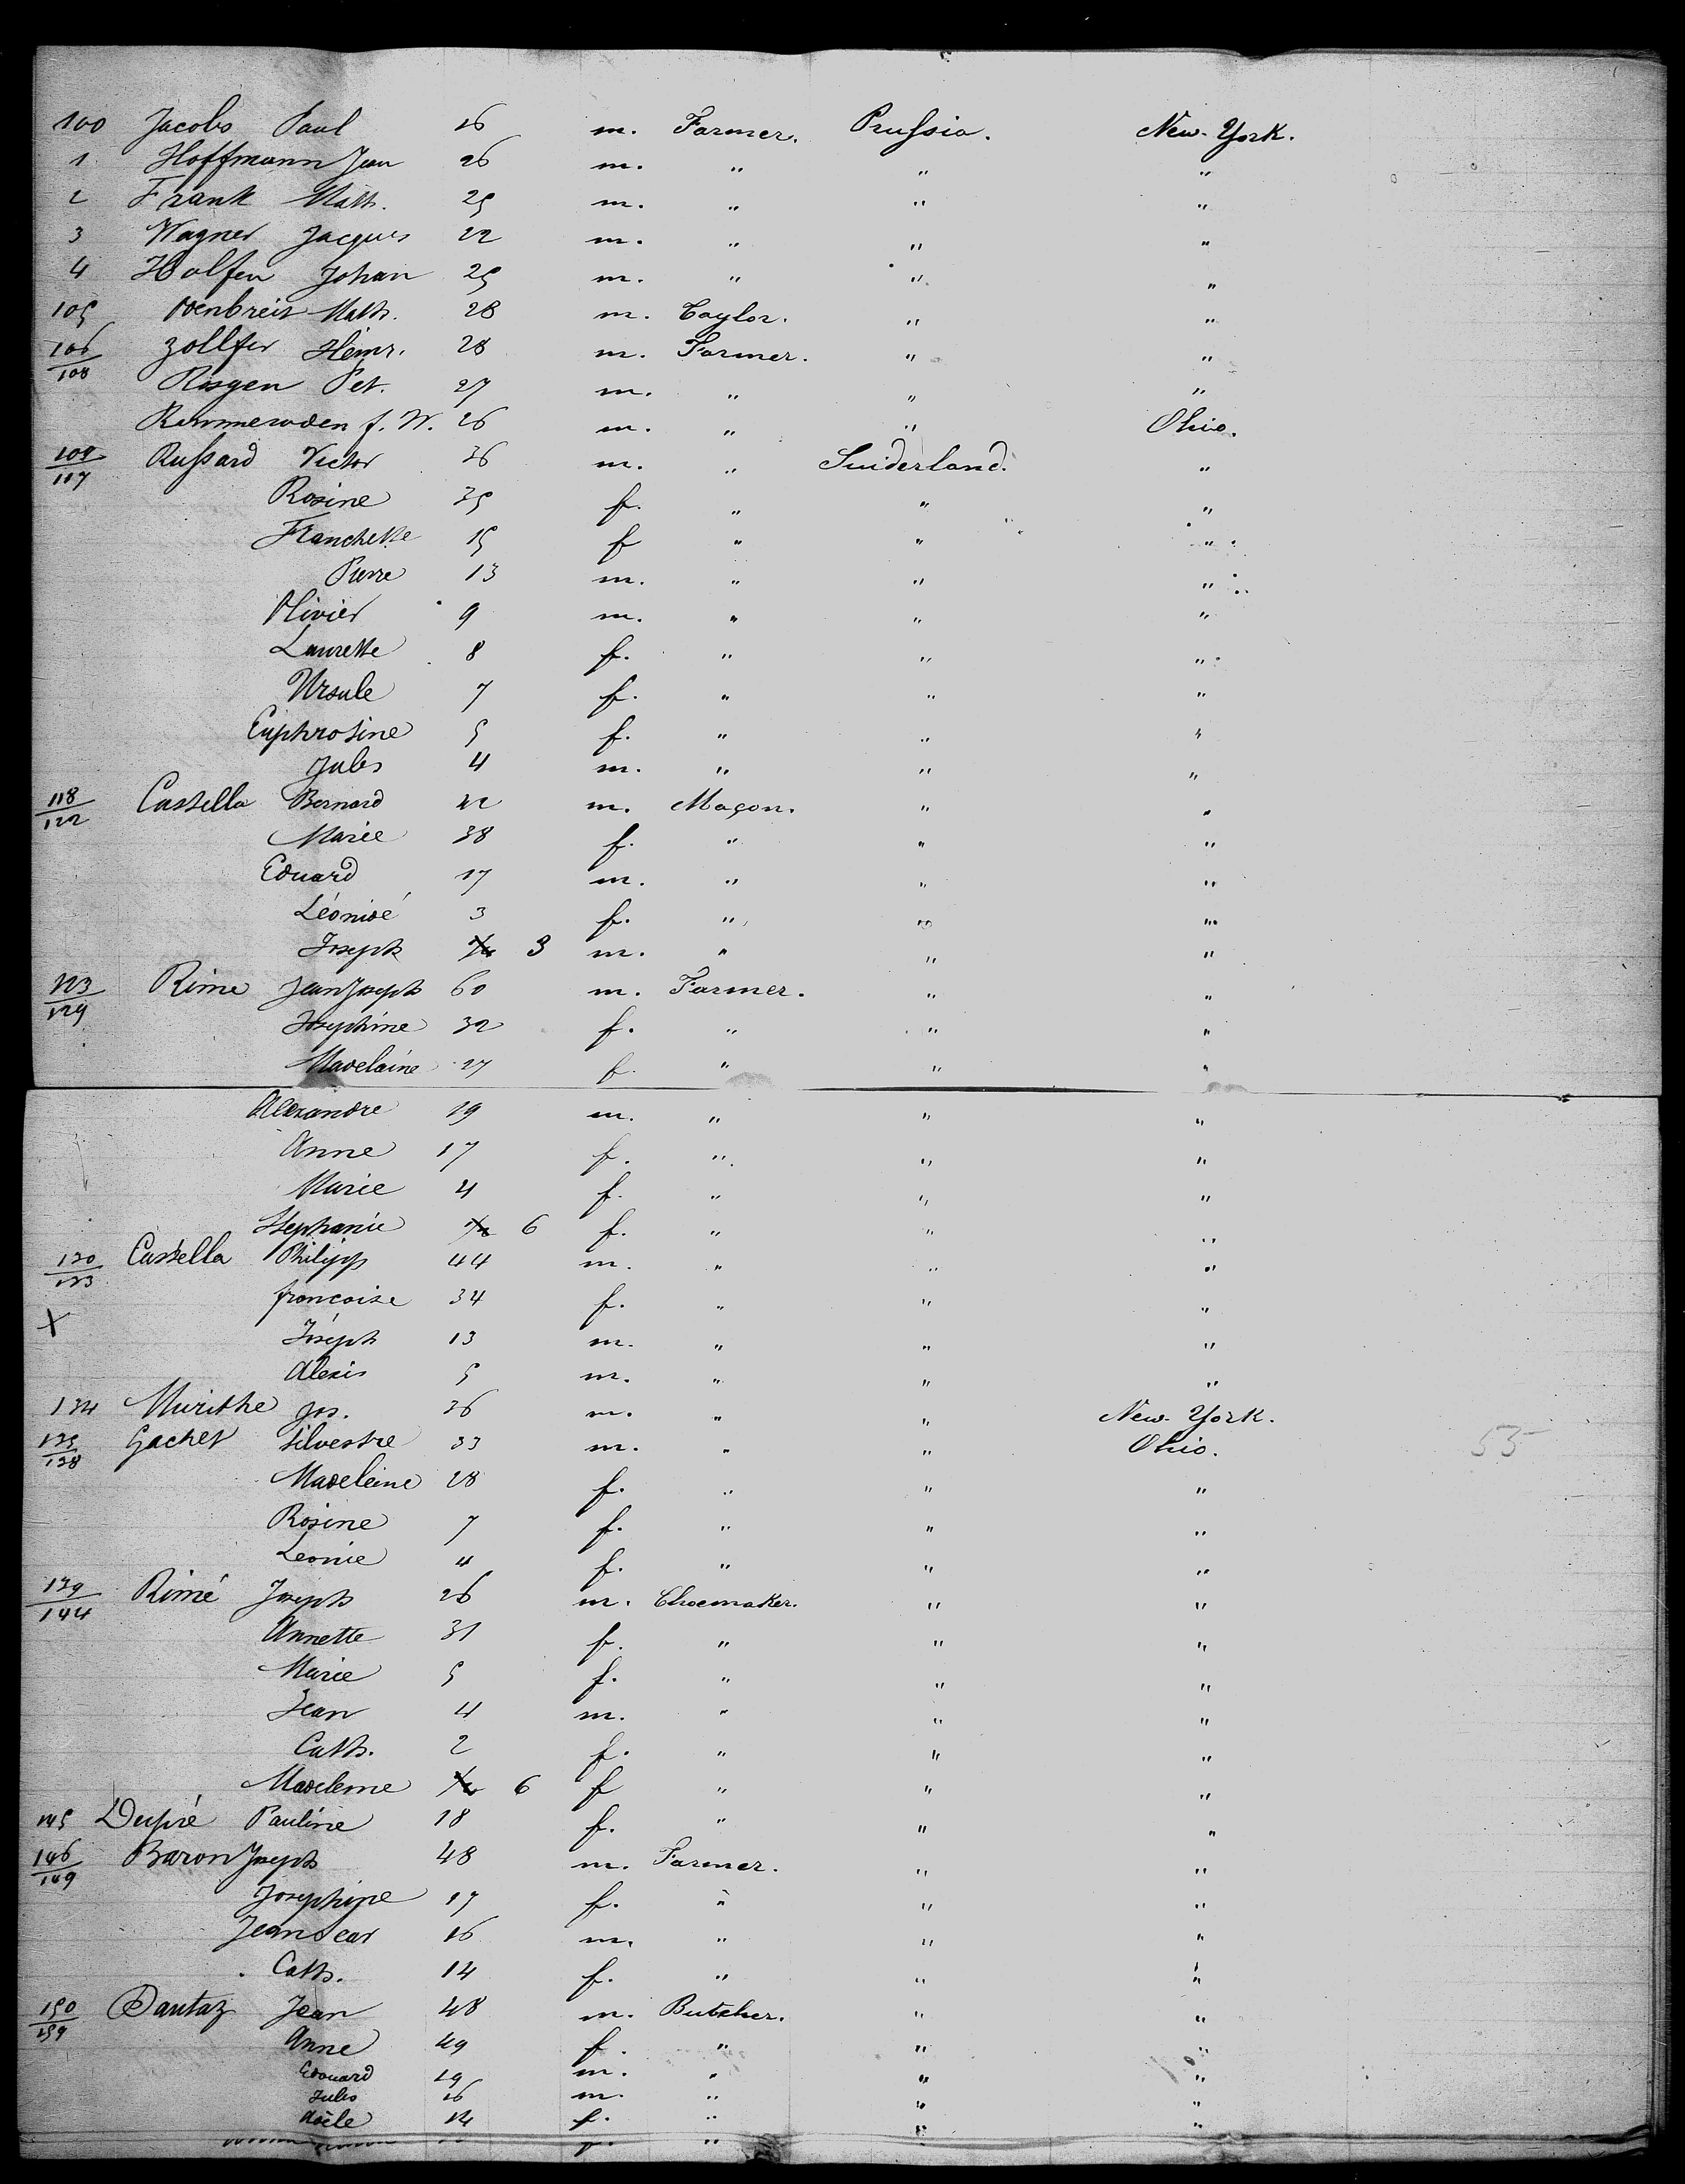 100 Jacobs Paul 26 m. Farmer. Prussia. New-York.
1 Hoffmann Jean 26 m. " " "
2 Frank Math. 25 m. " " "
3 Wagner Jacques 22 m. " " "
4 Holfen Johan 25 m. " " "
105 Odenbreit Math. 28 m. Taylor. " "
106/108 Zollfer Heinr. 28 m. Farmer. " "
Rosgen Pet. 27 m. " " "
f. W. 26 m. " " Ohio.
109/117 Russard Victor 36 m. " Suiderland. "
Rosine 35 f. " " "
Franchette 15 f " " "
Pierre 13 m. " " "
Olivier 9 m. " " "
Laurette 8 f. " " "
Ursule 7 f. " " "
Euphrosine 5 f. " " "
Jules 4 m. " " "
118/122 Castella Bernard 42 m. Maçon. " "
Marie 38 f. " " "
Edouard 17 m. " " "
Léonidé 3 f. " " "
Joseph 3 m. " " "
123/129 Rime Jean Joseph 60 m. Farmer. " "
Josephine 32 f. " " "
Madelaine 27 f. " " "
Alexandre 19 m. " " "
Anne 17 f. " " "
Marie 4 f. " " "
Stephanie 6 f. " " "
130/133 Castella Philipp 44 m. " " "
francoise 34 f. " " "
X Joseph 13 m. " " "
Alexis 5 m. " " "
134 Murithe Jos. 36 m. " " New-York.
135/138 Gachet Silvestre 33 m. " " Ohio. 55
Madeleine 28 f. " " "
Rosine 7 f. " " "
Leonie 4 f. " " "
139/144 Rimé Joseph 26 m. Choemaker. " "
Annette 31 f. " " "
Marie 5 f. " " "
Jean 4 m. " " "
Cath. 2 f. " " "
Madeleine 6 f " " "
145 Dupré Pauline 18 f. " " "
146/149 Baron Joseph 48 m. Farmer. " "
Josephine 17 f. " " "
Jean 16 m. " " "
Cath. 14 f. " " "
150/159 Dautaz Jean 48 m. Butcher. " "
Anne 49 f. " " "
Edouard 19 m. " " "
Jules 16 m. " " "
Adèle 14 f. " " "